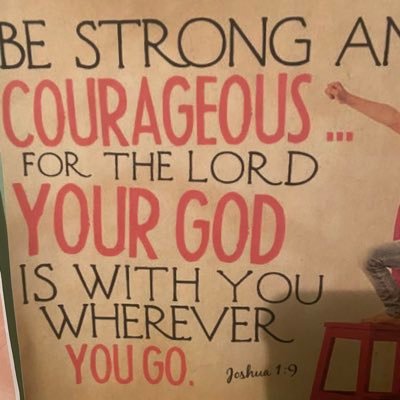 BE STRONG AN
COURAGEOUS...
FOR THE LORD
YOUR GOD
IS WITH YOU
WHEREVER
YOU GO.
Joshua 1:9